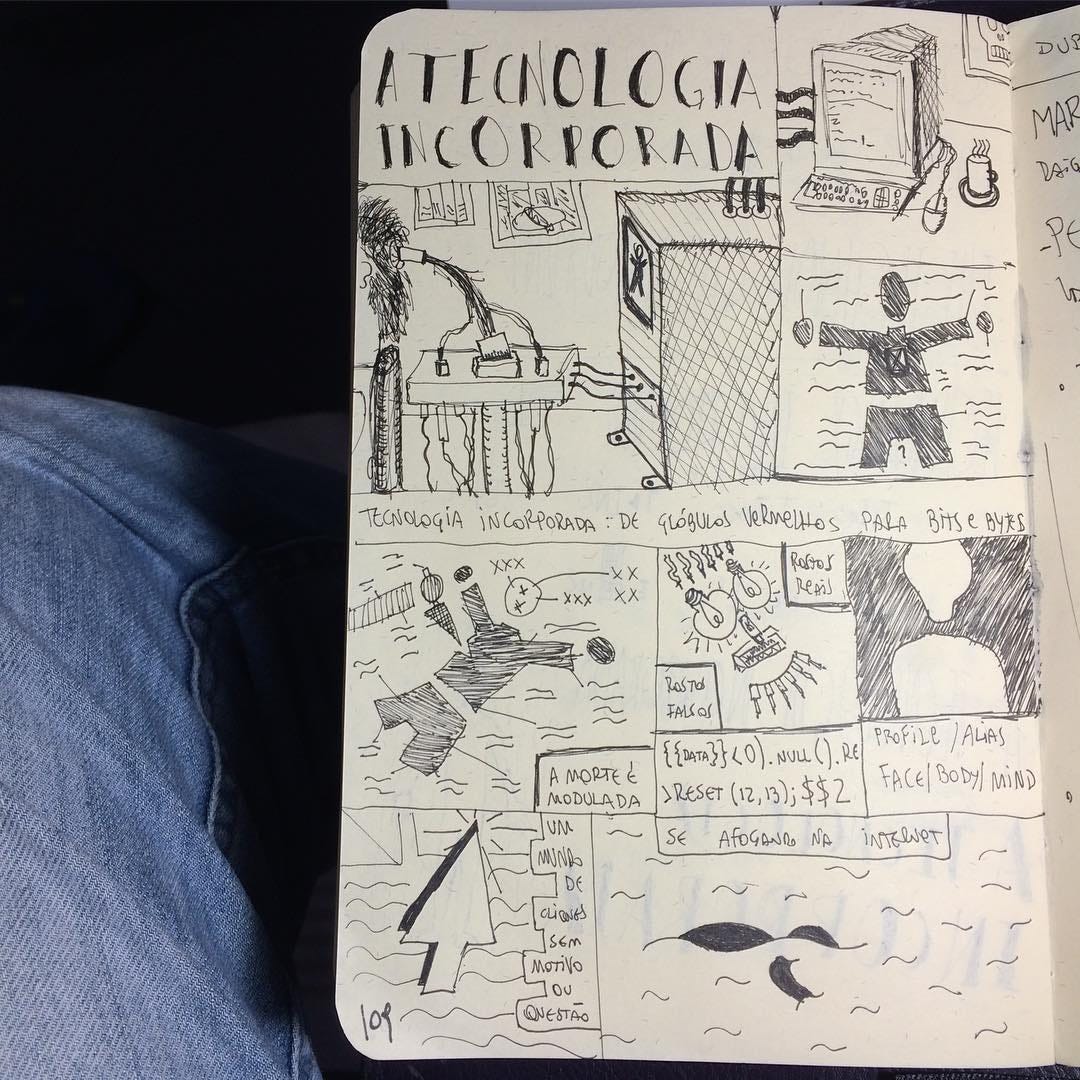 A TECNOLOGIA
INCORPORADA
TECNOLOGIA INCORPORADA: DE GLÓBULOS VERMELHOS PARA BITS E BYTES
?
XXX
XX
XXX
XX
ROSTOS
REAIS
ROSTOS
FALSOS
A MORTE É
MODULADA
{{DATA}}<0).NULL().RE
>RESET(12,13);$$2
PROFILE/ALIAS
FACE/BODY/MIND
UM
MUNDO
DE
CLIQUES
SEM
MOTIVO
OU
QUESTÃO
SE AFOGANDO NA INTERNET
109
DUB
MAR